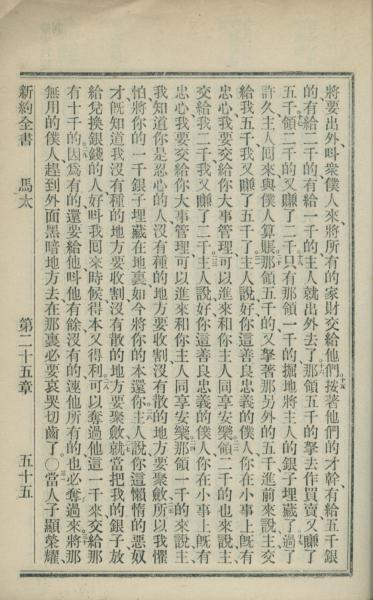 將要出外、叫衆僕人來將所有的家財交給他們、按著他們的才幹、有給五千銀
的有給二千的有給一千的主人就出外去了那領五千的拏去作買賣又賺了
五千領二千的又賺了二千只有那領一千的掘地將主人的銀子埋藏了過了
許久主人回來與僕人算賬那領五千的又拏著那另外的五千進前來說主交
給我五千我又賺了五千了主人說好你這善良忠義的僕人你在小事上旣有
忠心我要交給你大事管理可以進來和你主人同享安樂領二千的也來說主
交給我二千我又賺了二千主人說好你這善良忠義的僕人你在小事上旣有
忠心我要交給你大事管理可以進來和你主人同享安樂那領一千的來說主
我知道你是忍心的人沒有種的地方要收割沒有散的地方要聚斂所以我懼
怕將你的一千銀子埋藏在地裏如今將你的本還你主人說你這懶惰的惡奴
才旣知道我沒有種的地方要收割沒有散的地方要聚斂就當把我的銀子放
給兌換銀錢的人好叫我回來時候得本又得利可以奪過他這一千來交給那
有十千的因爲有的還要給他叫他有餘沒有的連他所有的也必奪過來將那
無用的僕人趕到外面黑暗地方去在那裏必要哀哭切齒了〇當人子顯榮耀
新約全書 馬太 第二十五章 五十五